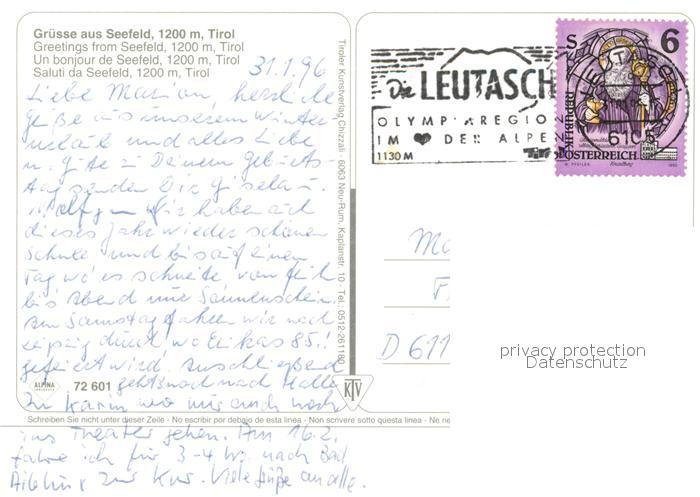 Grüsse aus Seefeld, 1200 m, Tirol
Greetings from Seefeld, 1200 m, Tirol
Un bonjour de Seefeld, 1200 m, Tirol
Saluti da Seefeld, 1200 m, Tirol
31.1.96
Liebe Marion, herzliche
Grüße aus unserem Winter-
urlaub und alles Liebe
u. Gute zu Deinem Geburts-
tag senden Dir Gisela u.
Wolfgang Wir haben auch
dieses Jahr wieder schönen
Schnee und bis auf einen
Tag wo es schneite von früh
bis abend nur Sonnenschein.
Am Samstag fahren wir nach
Leipzig durch wo Erikas 85.!
gefeiert wird. Anschließend
geht's noch nach Halle
zu Karin wo wir auch noch
ins Theater gehen. Am 16.2.
fahre ich für 3-4 Wo. nach Bad
Aibling zur Kur. Viele Grüße an alle.
ALPINA
72 601
KTV
Schreiben Sie nicht unter dieser Zeile - No escribir por debajo de esta linea - Non scrivere sotto questa linea - Ne
Tiroler Kunstverlag Chizzali · 6063 Neu-Rum, Kaplanstr. 10 · Tel.: 0512-261180
Die LEUTASCH
OLYMPIAREGION
IM DER ALPE
1130 M
Tirol
S 6
REPUBLIK
ÖSTERREICH
6105
Ma
F
D 611
privacy protection
Datenschutz